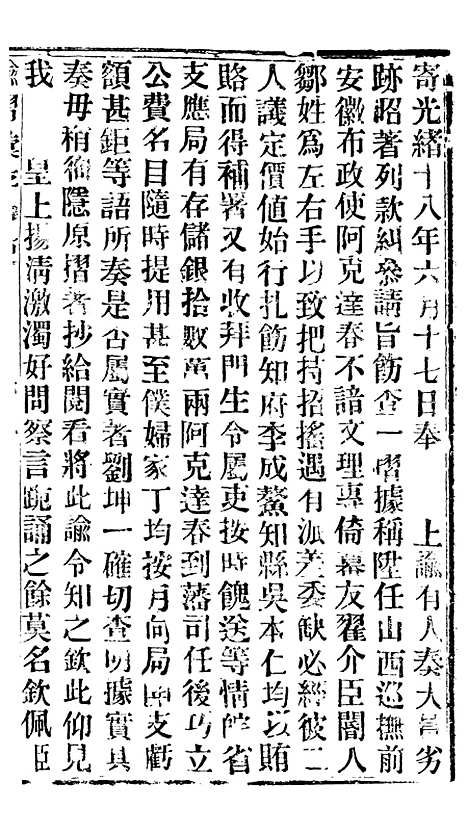 寄光緒十八年六月十七日奉　　上諭有人奏大員劣
跡昭著列款糾參請旨飭查一摺據稱陞任山西巡撫前
安徽布政使阿克達春不諳文理專倚幕友翟介臣閽人
鄒姓爲左右手以致把持招搖遇有派差委缺必經彼二
人議定價值始行扎飭知府李成鰲知縣吳本仁均以賄
賂而得補署又有收拜門生令屬吏按時餽送等情皖省
支應局有存儲銀拾數萬兩阿克達春到藩司任後巧立
公費名目隨時提用甚至僕婦家丁均按月向局面支虧
額甚鉅等語所奏是否屬實着劉坤一確切查明據實具
奏毋稍徇隱原摺着抄給閱看將此諭令知之欽此仰見
我　　皇上揚清激濁好問察言跪誦之餘莫名欽佩臣
諭摺彙